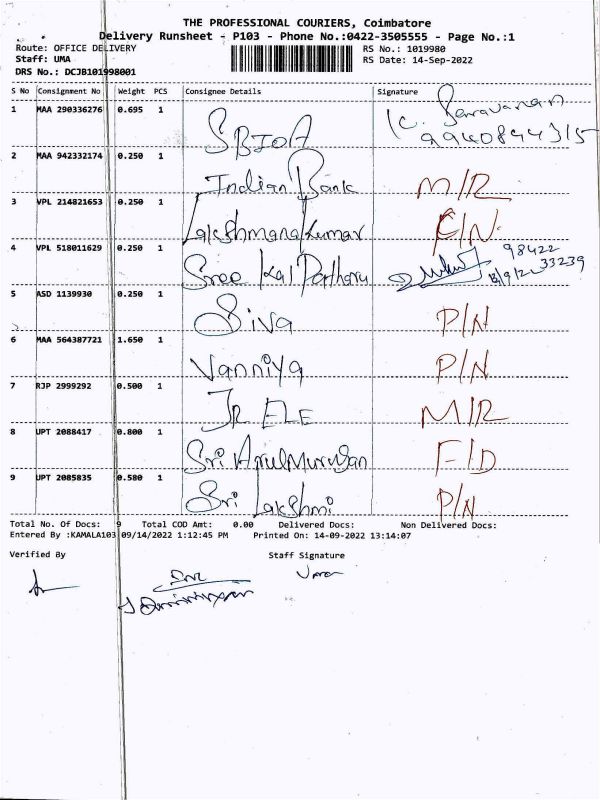 THE PROFESSIONAL COURIERS, Coimbatore
Delivery Runsheet - P103 - Phone No.:0422-3505555 - Page No.:1
Route: OFFICE DELIVERY RS No.: 1019980
Staff: UMA RS Date: 14-Sep-2022
DRS No.: DCJB101998001
S No Consignment No Weight PCS Consignee Details Signature
1 MAA 290336276 0.695 1 SBIOA K. Saravanan
9940844315
2 MAA 942332174 0.250 1 Indian Bank M/R
3 VPL 214821653 0.250 1 Lakshmana Kumar P/N
4 VPL 518011629 0.250 1 Sree Kal Patharu 98422
33239
5 ASD 1139930 0.250 1 Siva P/N
6 MAA 564387721 1.650 1 Vanniya P/N
7 RJP 2999292 0.500 1 JR ELE M/R
8 UPT 2088417 0.800 1 Sri Arul Murugan F/D
9 UPT 2085835 0.580 1 Sri Lakshmi P/N
Total No. Of Docs: 9 Total COD Amt: 0.00 Delivered Docs: Non Delivered Docs:
Entered By :KAMALA103 09/14/2022 1:12:45 PM Printed On: 14-09-2022 13:14:07
Verified By Staff Signature
Uma